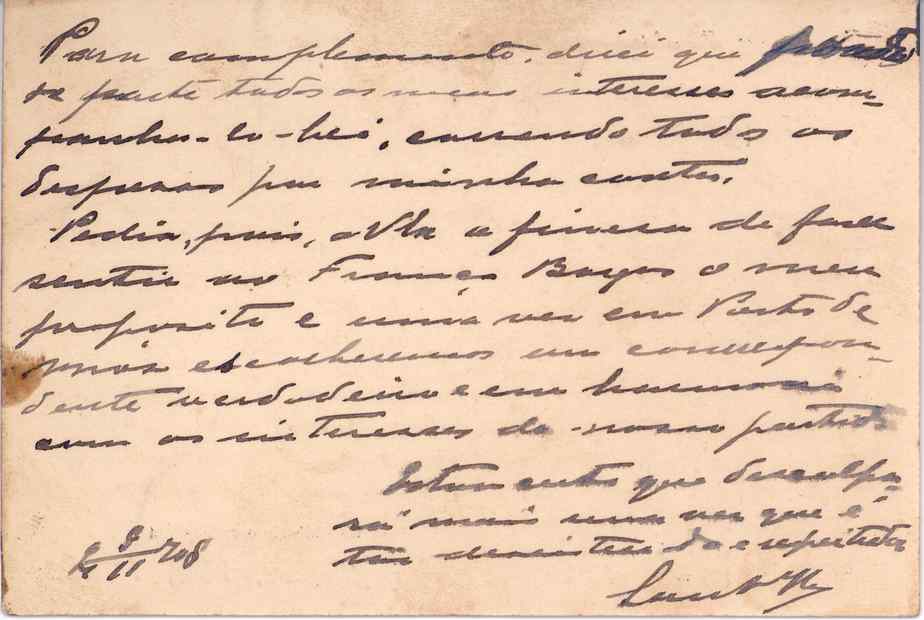 Para complemento, direi que pondo
de parte todos os meus interesses acom-
panha-lo-hei, correndo todas as
despezas por minha conta.
Pedia, pois, a V. a fineza de fazer
sentir ao França Borges o meu
proposito e uma vez em Porto de
Moz escolheremos um correspon-
dente verdadeiro e em harmonia
com os interesses do nosso partido
que desculpa-
rá mais uma vez que é
e respeitador
908